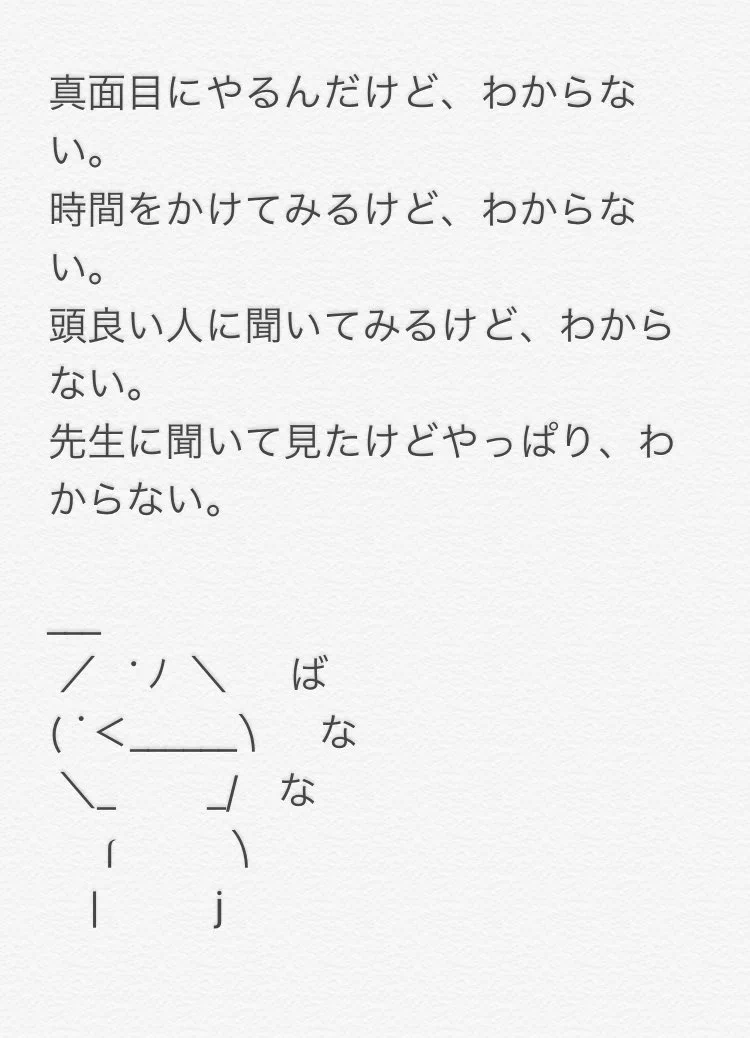 真面目にやるんだけど、わからな
い。
時間をかけてみるけど、わからな
い。
頭良い人に聞いてみるけど、わから
ない。
先生に聞いて見たけどやっぱり、わ
からない。
___
／ ˙ﾉ ＼　　ば
( ˙＜______)　　な
＼_　　　_/　な
╭　　　)
|　　　j